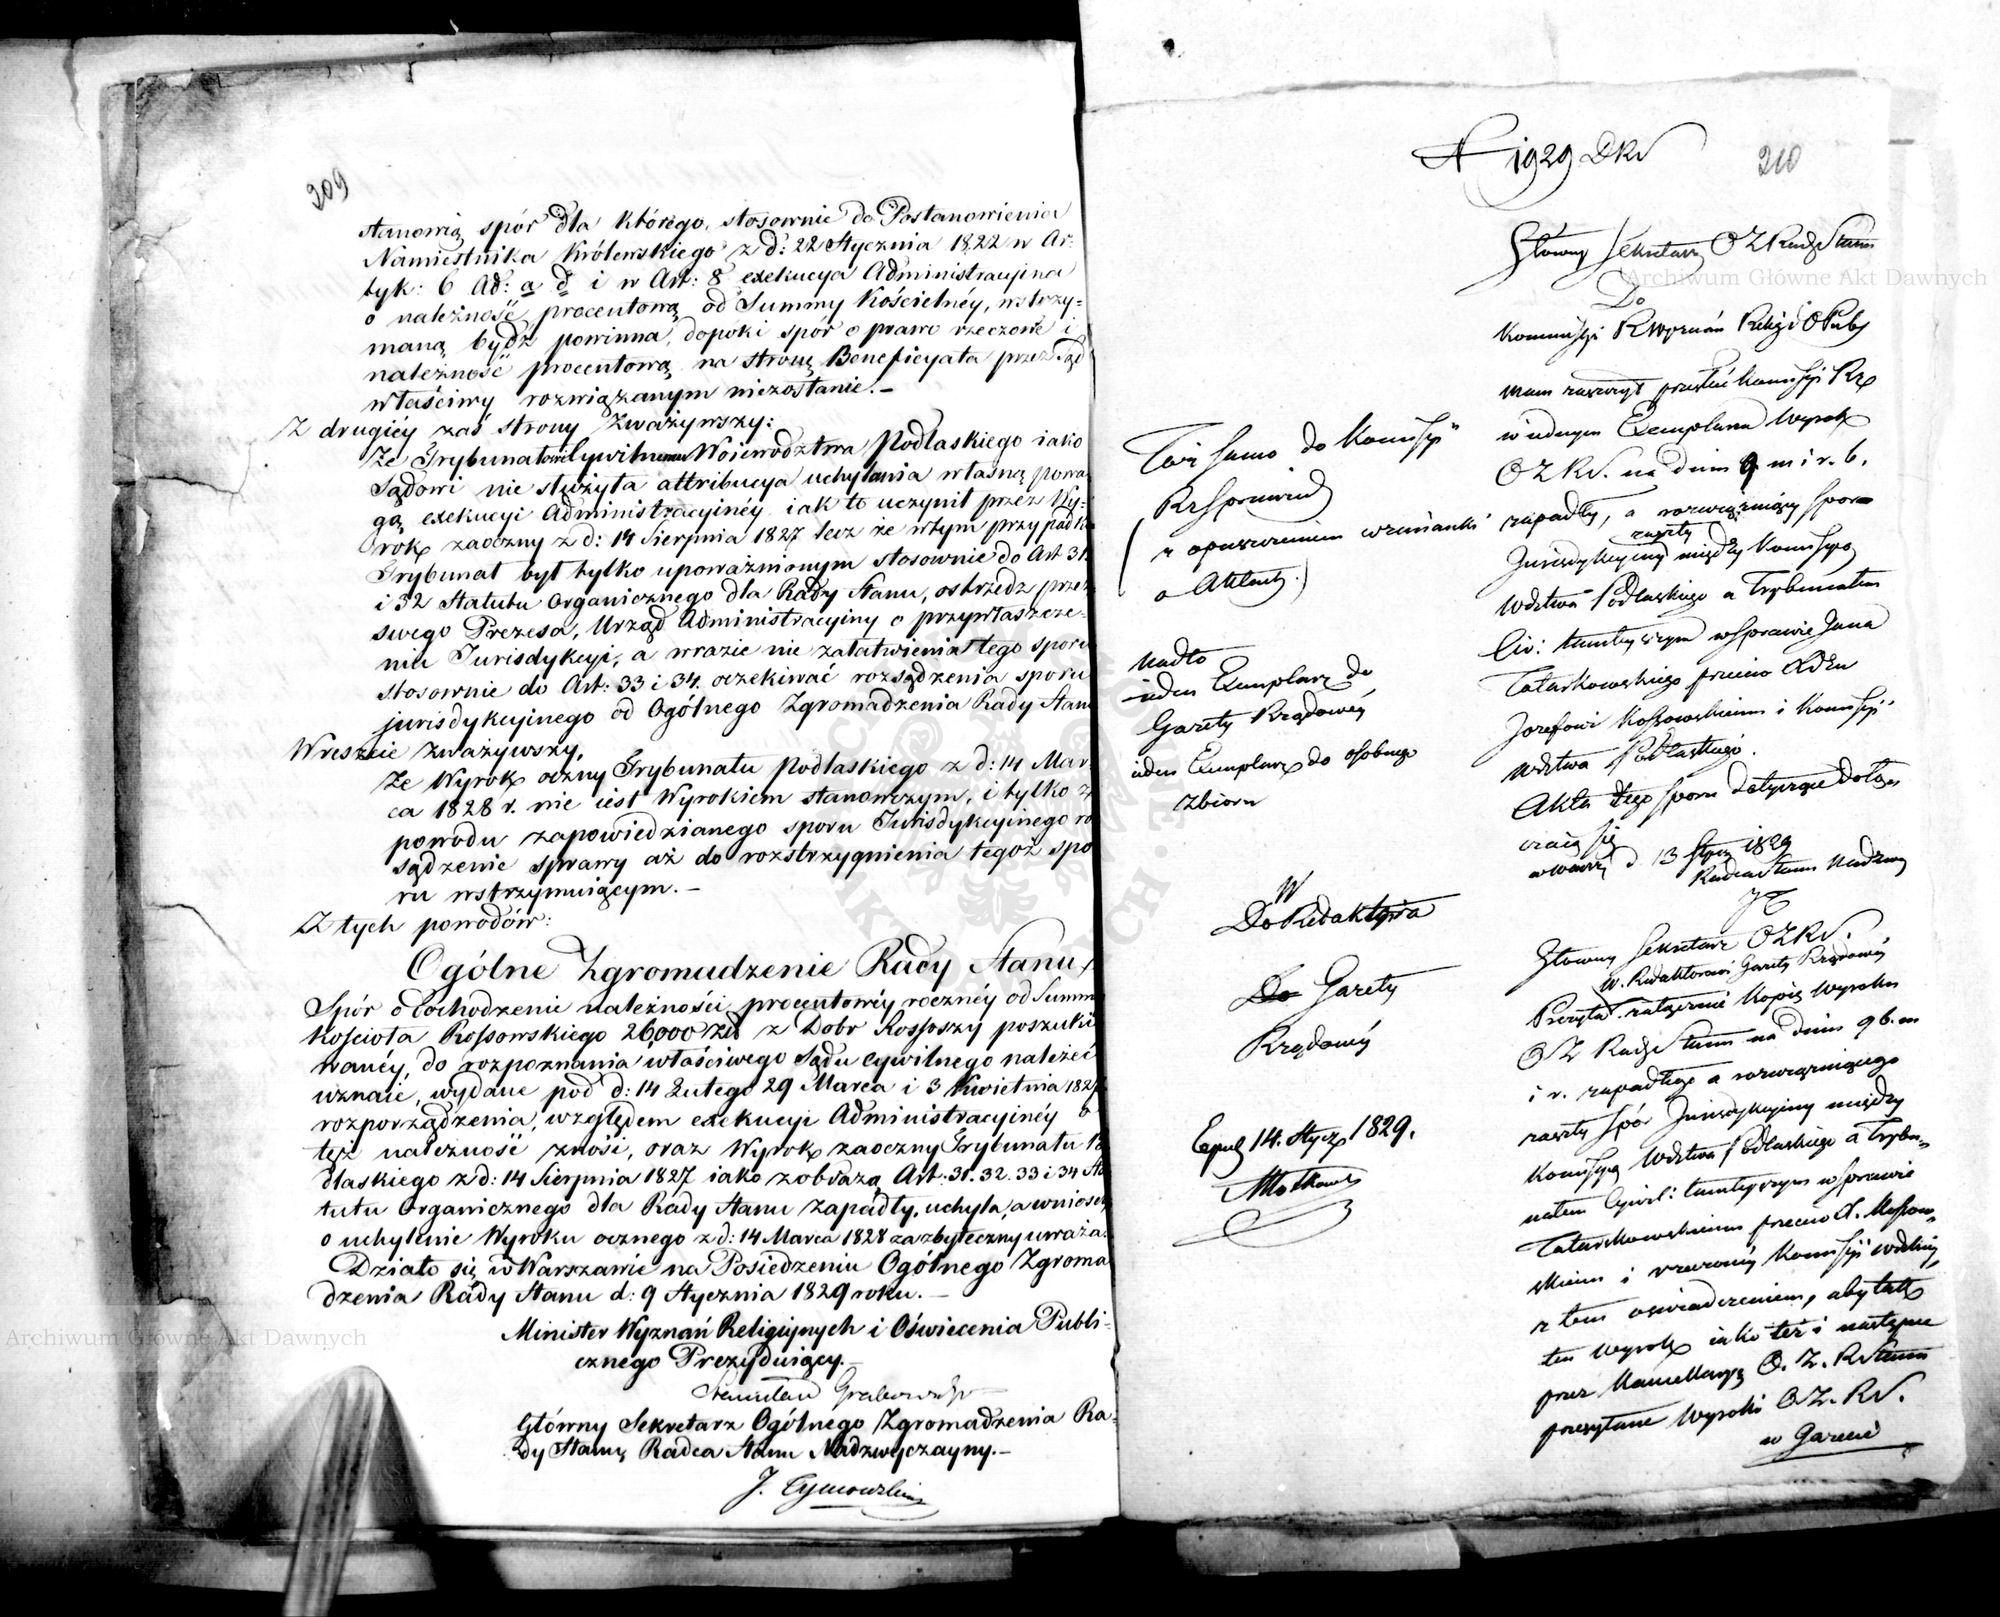 209
stanowią spór dla którego, stosownie do Postanowienia
Namiestnika Królewskiego z d: 22 Stycznia 1822 w Ar:
tyk: 6 Ad: a d i w Art: 8 exekucya Administracyina
o należność procentową od Summy Kościelnéy, wstrzy=
maną bydź powinna, dopóki spór o prawo rzeczowe i
należność procentową na stronę Beneficyata przez Sąd
właściwy rozwiązanym niezostanie.—
Z drugiéy zaś strony zważywszy:
Że Trybunałowi Cywilnemu Województwa Podlaskiego iako
Sądowi nie służyła attribucya uchylania własną powa
gą exekucyi Administracyinéy iak to uczynił przez Wy=
rok zaoczny z d: 14 Sierpnia 1827 lecz że w tym przypadk
Trybunał był tylko upoważnionym stosownie do Art 31.
i 32 Statutu Organicznego dla Rady Stanu, ostrzedz przez
swego Prezesa, Urząd Administracyiny o przywłaszcze=
niu Jurisdykcyi, a w razie nie załatwienia tego sporu
stosownie do Art: 33 i 34. oczekiwać rozsądzenia sporu
jurisdykcyinego od Ogólnego Zgromadzenia Rady Stanu
Wreszcie zważywszy,
Że Wyrok oczny Trybunału Podlaskiego z d: 14 Mar
ca 1828 r. nie iest Wyrokiem stanowczym, i tylko z
powodu zapowiedzianego sporu Jurisdykcyinego ro
sądzenie sprawy aż do rozstrzygnienia tegoż spo
ru wstrzymuiącym.—
Z tych powodów:
Ogólne Zgromadzenie Rady Stanu,
Spór o dochodzenie należności procentowéy rocznéy od Summ
Kościoła Rossowskiego 26,000 Zł z Dobr Rossoszy poszuki
wanéy, do rozpoznania właściwego Sądu cywilnego należeć
uznaie, wydane pod d: 14 Lutego 29 Marca i 3 Kwietnia 182
rozporządzenia, względem exekucyi Administracyinéy o
tęż należność znosi, oraz Wyrok zaoczny Trybunału Po
dlaskiego z d: 14 Sierpnia 1827 iako z obrazą Art. 31. 32. 33 i 34 Sta
tutu Organicznego dla Rady Stanu zapadły, uchyla, a wniosek
o uchylenie Wyroku ocznego z d: 14 Marca 1828 za zbyteczny uważa.
Działo się w Warszawie na Posiedzeniu Ogólnego Zgroma
dzenia Rady Stanu d: 9 Stycznia 1829 roku.—
Minister Wyznań Religiynych i Oświecenia Publi=
cznego Prezyduiący.—
Stanisław Grabowski
Główny Sekretarz Ogólnego Zgromadzenia Ra=
dy Stanu, Radca Stanu Nadzwyczayny.—
J. Tymowski
210
Główny Sekretarz OZ Rady Stanu
Do
Kommissyi R Wyznań Religii O Pub
Mam zaszczyt przesłać Kommissyi Rz
w iednym Exemplarzu Wyrok
OZRS. na dniu 9 m i r. b.
zapadły, a rozwiązuiący spór
zaszły
Jurisdykcyiny między Kommissyą
Wdztwa Podlaskiego a Trybunałem
Civ: tamteyszym w Sprawie Jana
Tatarkowskiego przeciw Xdzu
Jozefowi Kossowskiemu i Kommissyi
Wdztwa Podlaskiego.
Akta tego sporu dotyczące dołą=
czaią się
w Warsz d 13 Stycz 1829
Radca Stanu Nadzwy
Toż samo do Kommissyi
Rz Sprawied
(z opuszczeniem wzmianki
o Aktach.)
Nadto
ieden Exemplarz do
Gazety Rządowéy
ieden Exemplarz do osobnego
Zbioru
W
Do Redaktora
Do Gazety
Rządowéy
Exped 14. Stycz 1829.
Główny Sekretarz OZRS.
W. Redaktorowi Gazety Rządowéy
Przesyła załączenie Kopią Wyroku
OZ Rady Stanu na dniu 9 b. m
i r. zapadłego a rozwiązuiącego
zaszły spór Jurisdykcyiny między
Kommissyą Wdztwa Podlaskiego a Trybu=
nałem Cywil: tamteyszym w sprawie
Tatarkowskiemu przeciw X. Kossow=
skiemu i rzeczonéy Kommissyi Wdzkiéy,
z tem oświadczeniem, aby tak
ten Wyrok iako też i następne
przez Kancellaryą O. Z. R Stanu
przesyłane Wyroki OZ. RS.
w Gazecie
Archiwum Główne Akt Dawnych
Archiwum Główne Akt Dawnych